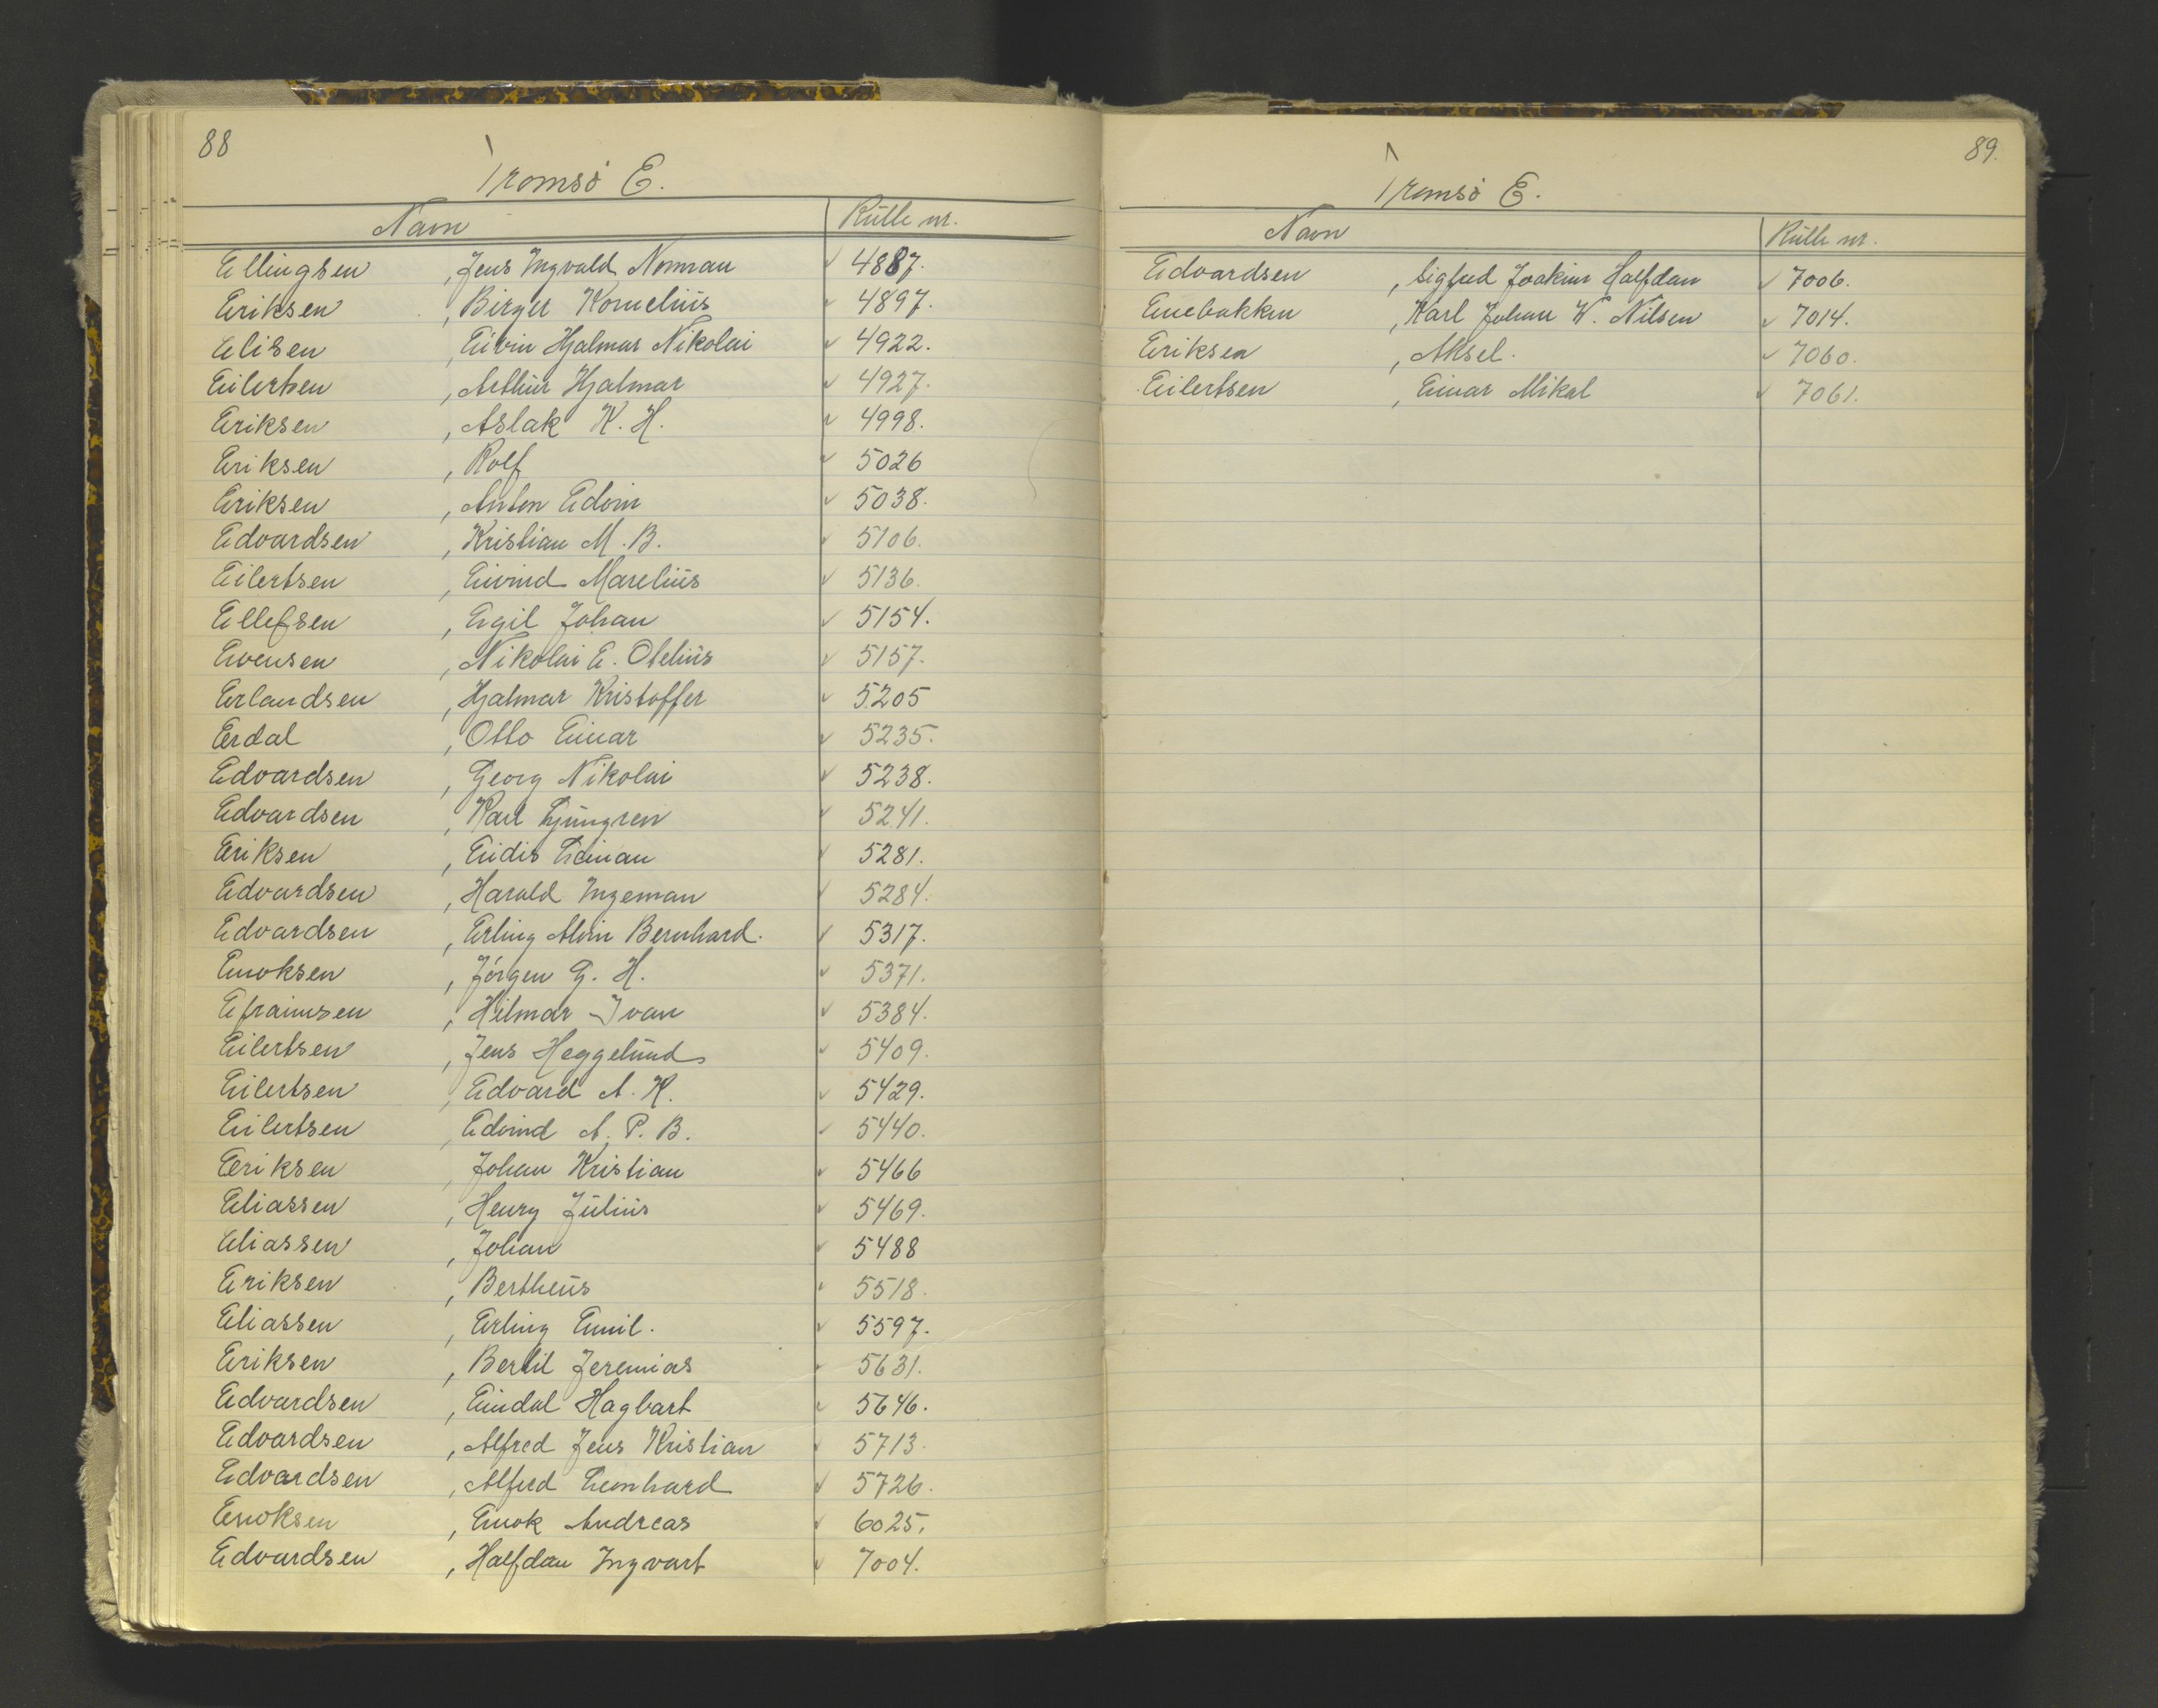 88
Tromsø E.
Navn Rulle nr.
Ellingsen, Jens Ingvald Norman 4887.
Eriksen, Birger Kornelius 4897.
Elisen, Eivin Hjalmar Nikolai 4922.
Eilertsen, Arthur Hjalmar 4927.
Eriksen, Aslak K. H. 4998.
Eriksen, Rolf 5026
Eriksen, Anton Edvin 5038.
Edvardsen, Kristian M. B. 5106.
Eilertsen, Eivind Marelius 5136.
Ellefsen, Egil Johan 5154.
Evensen, Nikolai E. Otelius 5157.
Erlandsen, Hjalmar Kristoffer 5205
Erdal, Otto Einar 5235.
Edvardsen, Georg Nikolai 5238.
Edvardsen, Karl Ljungren 5241.
Eriksen, 5281.
Edvardsen, Harald Ingeman 5284.
Edvardsen, Erling Alvin Bernhard. 5317.
Enoksen, Jørgen G. H. 5371.
Efraimsen, Hilmar Ivan 5384.
Eilertsen, Jens Heggelund 5409.
Eilertsen, Edvard A. K. 5429.
Eilertsen, Edvind A. P. B. 5440.
Eriksen, Johan Kristian 5466
Eliassen, Henry Julius 5469.
Eliassen, Johan 5488
Eriksen, Bertheus 5518.
Eliassen, Erling Emil. 5597.
Eriksen, Bertil Jeremias 5631.
Edvardsen, Hagbart 5646.
Edvardsen, Alfred Jens Kristian 5713.
Edvardsen, Alfred Leonhard 5726.
Enoksen, Enok Andreas 6025.
Edvardsen, Halfdan Ingvart 7004.
89.
Tromsø E.
Navn Rulle nr.
Edvardsen, Sigfred Joakim Halfdan 7006.
Enebakken, Karl Johan W. Nilsen 7014.
Eriksen, Aksel. 7060.
Eilertsen, Einar Mikal 7061.